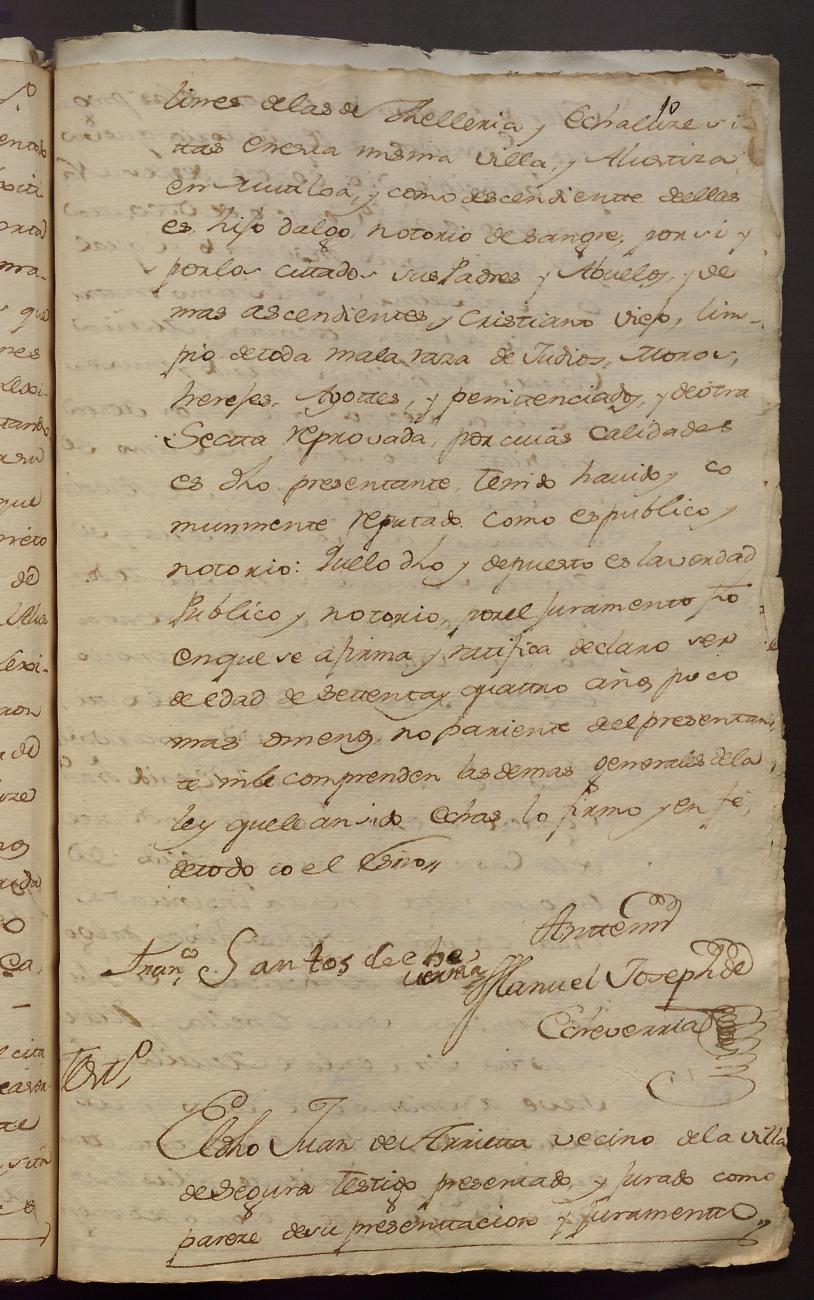 10
lines delas de Thelleria y Echaluze si
ttas en esta misma villa, y Murtiza
en Mutiloa, y como descendiente deellas
es hijo dalgo, notorio de sangre, por si y
por los cittados sus Padres y Abuelos, y de
mas ascendientes, y Cristiano viejo, lim-
pio de toda mala raza de Judios, Moros,
herejes, Agottes, y penitenciados, y de otra
Sectta reprovada, por cuias calidades
es dho presentante, tenido havido y co
munmente reputado como es publico y
notorio: Quello dho y depuesto es la verdad
Publico y notorio, por el juramento fho
en que se afirma y ratifica declaro ser
de edad de settenta y quattro años poco
mas o menos, no pariente del presentan
te ni le comprenden las demas generales de la
ley que le an sido echas lo firmo y en fe,
de todo io el Essno
Franco Santos de eche
verria
Antte mi
Manuel Joseph de
Echeverria
Testo
El dho Juan de Arrietta vecino de la villa
de Segura testigo presentado, y jurado como
pareze de su presenttacion y juramentto,